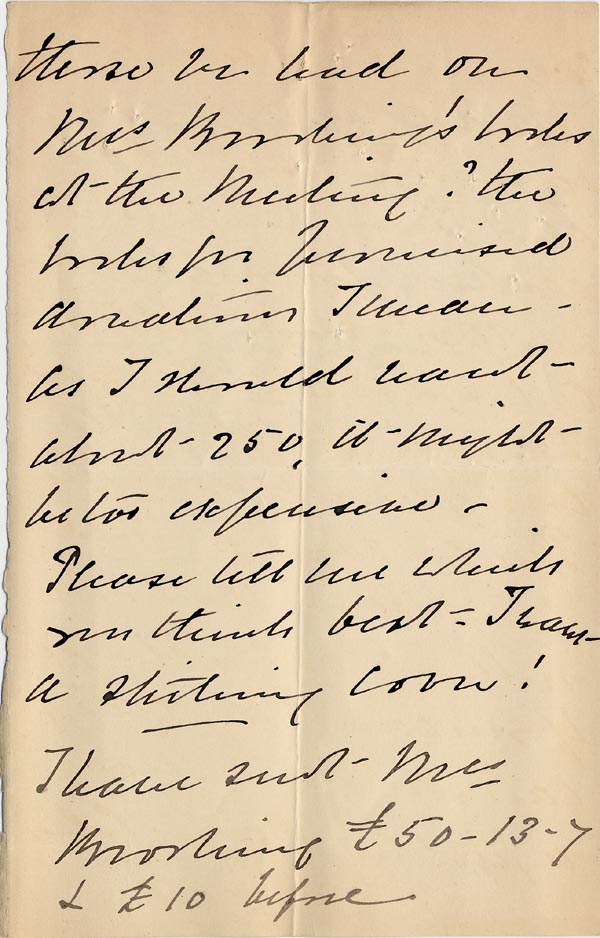 these be laid on
Mrs Brushing's books
at the Meeting? the
books for promised
donations I mean -
As I should want -
about - 250, it might -
be too expensive -
Please tell me which
you think best - I want
a striking cover!
I have sent - Mrs
Brushing £50-13-7
& £10 before